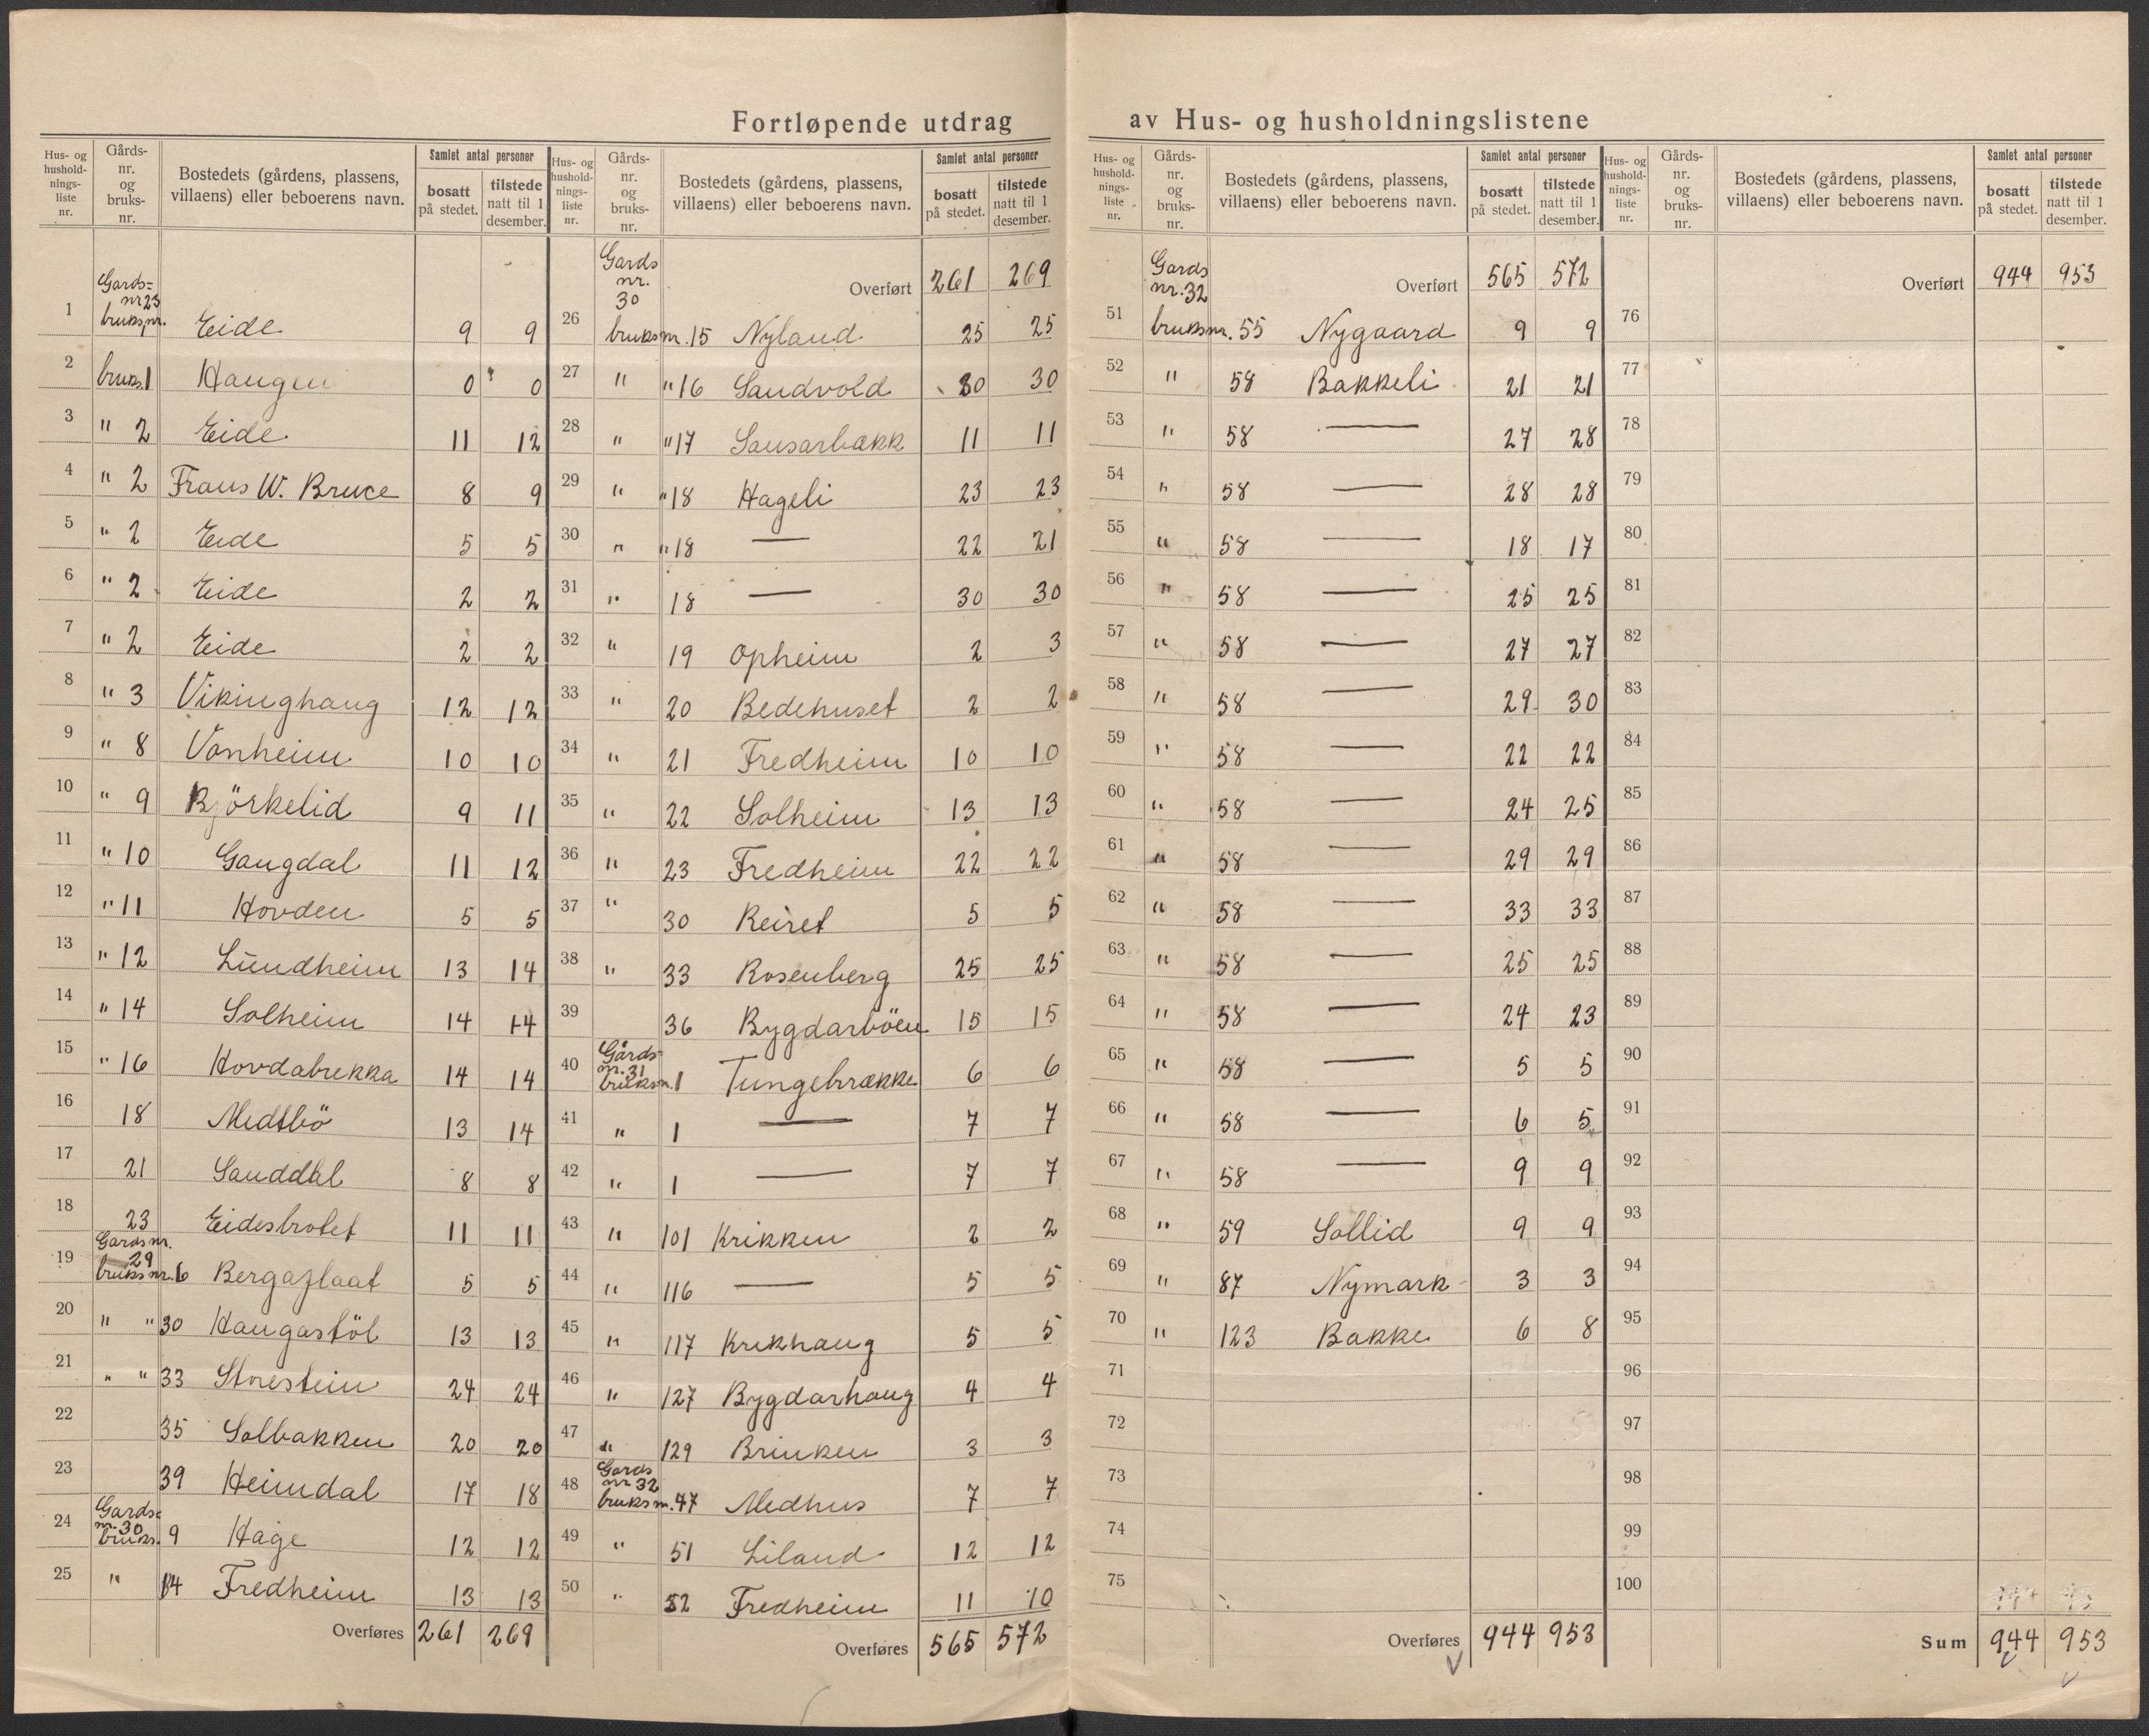 Fortløpende utdrag av Hus- og husholdningslistene
Hus- og hushold- nings- liste nr.
Gårds- nr. og bruks- nr.
Bostedets (gårdens, plassens, villaens) eller beboerens navn.
Samlet antal personer
bosatt på stedet.
tilstede natt til 1 desember.
1 Gards= nr 23 bruksnr. 1 Eide 9 9
2 bruks. 1 Haugen 0 0
3 " 2 Eide 11 12
4 " 2 Frans W. Bruce 8 9
5 " 2 Eide 5 5
6 " 2 Eide 2 2
7 " 2 Eide 2 2
8 " 3 Vikinghaug 12 12
9 " 8 Vonheim 10 10
10 " 9 Björkelid 9 11
11 " 10 Gaugdal 11 12
12 " 11 Hovden 5 5
13 " 12 Lundheim 13 14
14 " 14 Solheim 14 14
15 " 16 Hovdabrekka 14 14
16 18 Medtbö 13 14
17 21 Sanddal 8 8
18 23 Eidesbrotet 11 11
19 Gards nr. 29 bruksnr. 6 Bergaflaat 5 5
20 " " 30 Haugastöl 13 13
21 " " 33 Storestein 24 24
22 35 Solbakken 20 20
23 39 Heimdal 17 18
24 Gards= nr. 30 bruks. 9 Hage 12 12
25 " 14 Fredheim 13 13
Overføres 261 269
Hus- og hushold- nings- liste nr.
Gårds- nr. og bruks- nr.
Bostedets (gårdens, plassens, villaens) eller beboerens navn.
Samlet antal personer
bosatt på stedet.
tilstede natt til 1 desember.
Gards nr. 30 Overført 261 269
26 bruksnr. 15 Nyland 25 25
27 " " 16 Sandvold 30 30
28 " " 17 Sausarbakk 11 11
29 " " 18 Hageli 23 23
30 " " 18 — 22 21
31 " 18 — 30 30
32 " 19 Opheim 2 3
33 " 20 Bedehuset 2 2
34 " 21 Fredheim 10 10
35 " 22 Solheim 13 13
36 " 23 Fredheim 22 22
37 " 30 Reiret 5 5
38 " 33 Rosenberg 25 25
39 36 Bygdarböen 15 15
40 Gårds- nr. 31 bruksn. 1 Tungebrække 6 6
41 " 1 — 7 7
42 " 1 — 7 7
43 " 101 Krikken 2 2
44 " 116 — 5 5
45 " 117 Krikhaug 5 5
46 " 127 Bygdarhaug 4 4
47 " 129 Brinken 3 3
48 Gards nr 32 bruksn. 47 Medhus 7 7
49 " 51 Liland 12 12
50 " 52 Fredheim 11 10
Overføres 565 572
Hus- og hushold- nings- liste nr.
Gårds- nr. og bruks- nr.
Bostedets (gårdens, plassens, villaens) eller beboerens navn.
Samlet antal personer
bosatt på stedet.
tilstede natt til 1 desember.
Gards nr. 32 Overført 565 572
51 bruksnr. 55 Nygaard 9 9
52 " 58 Bakkeli 21 21
53 " 58 — 27 28
54 " 58 — 28 28
55 " 58 — 18 17
56 " 58 — 25 25
57 " 58 — 27 27
58 " 58 — 29 30
59 " 58 — 22 22
60 " 58 — 24 25
61 " 58 — 29 29
62 " 58 — 33 33
63 " 58 — 25 25
64 " 58 — 24 23
65 " 58 — 5 5
66 " 58 — 6 5
67 " 58 — 9 9
68 " 59 Sollid 9 9
69 " 87 Nymark 3 3
70 " 123 Bakke 6 8
71
72
73
74
75
Overføres 944 953
Hus- og hushold- nings- liste nr.
Gårds- nr. og bruks- nr.
Bostedets (gårdens, plassens, villaens) eller beboerens navn.
Samlet antal personer
bosatt på stedet.
tilstede natt til 1 desember.
Overført 944 953
76
77
78
79
80
81
82
83
84
85
86
87
88
89
90
91
92
93
94
95
96
97
98
99
100
Sum 944 953